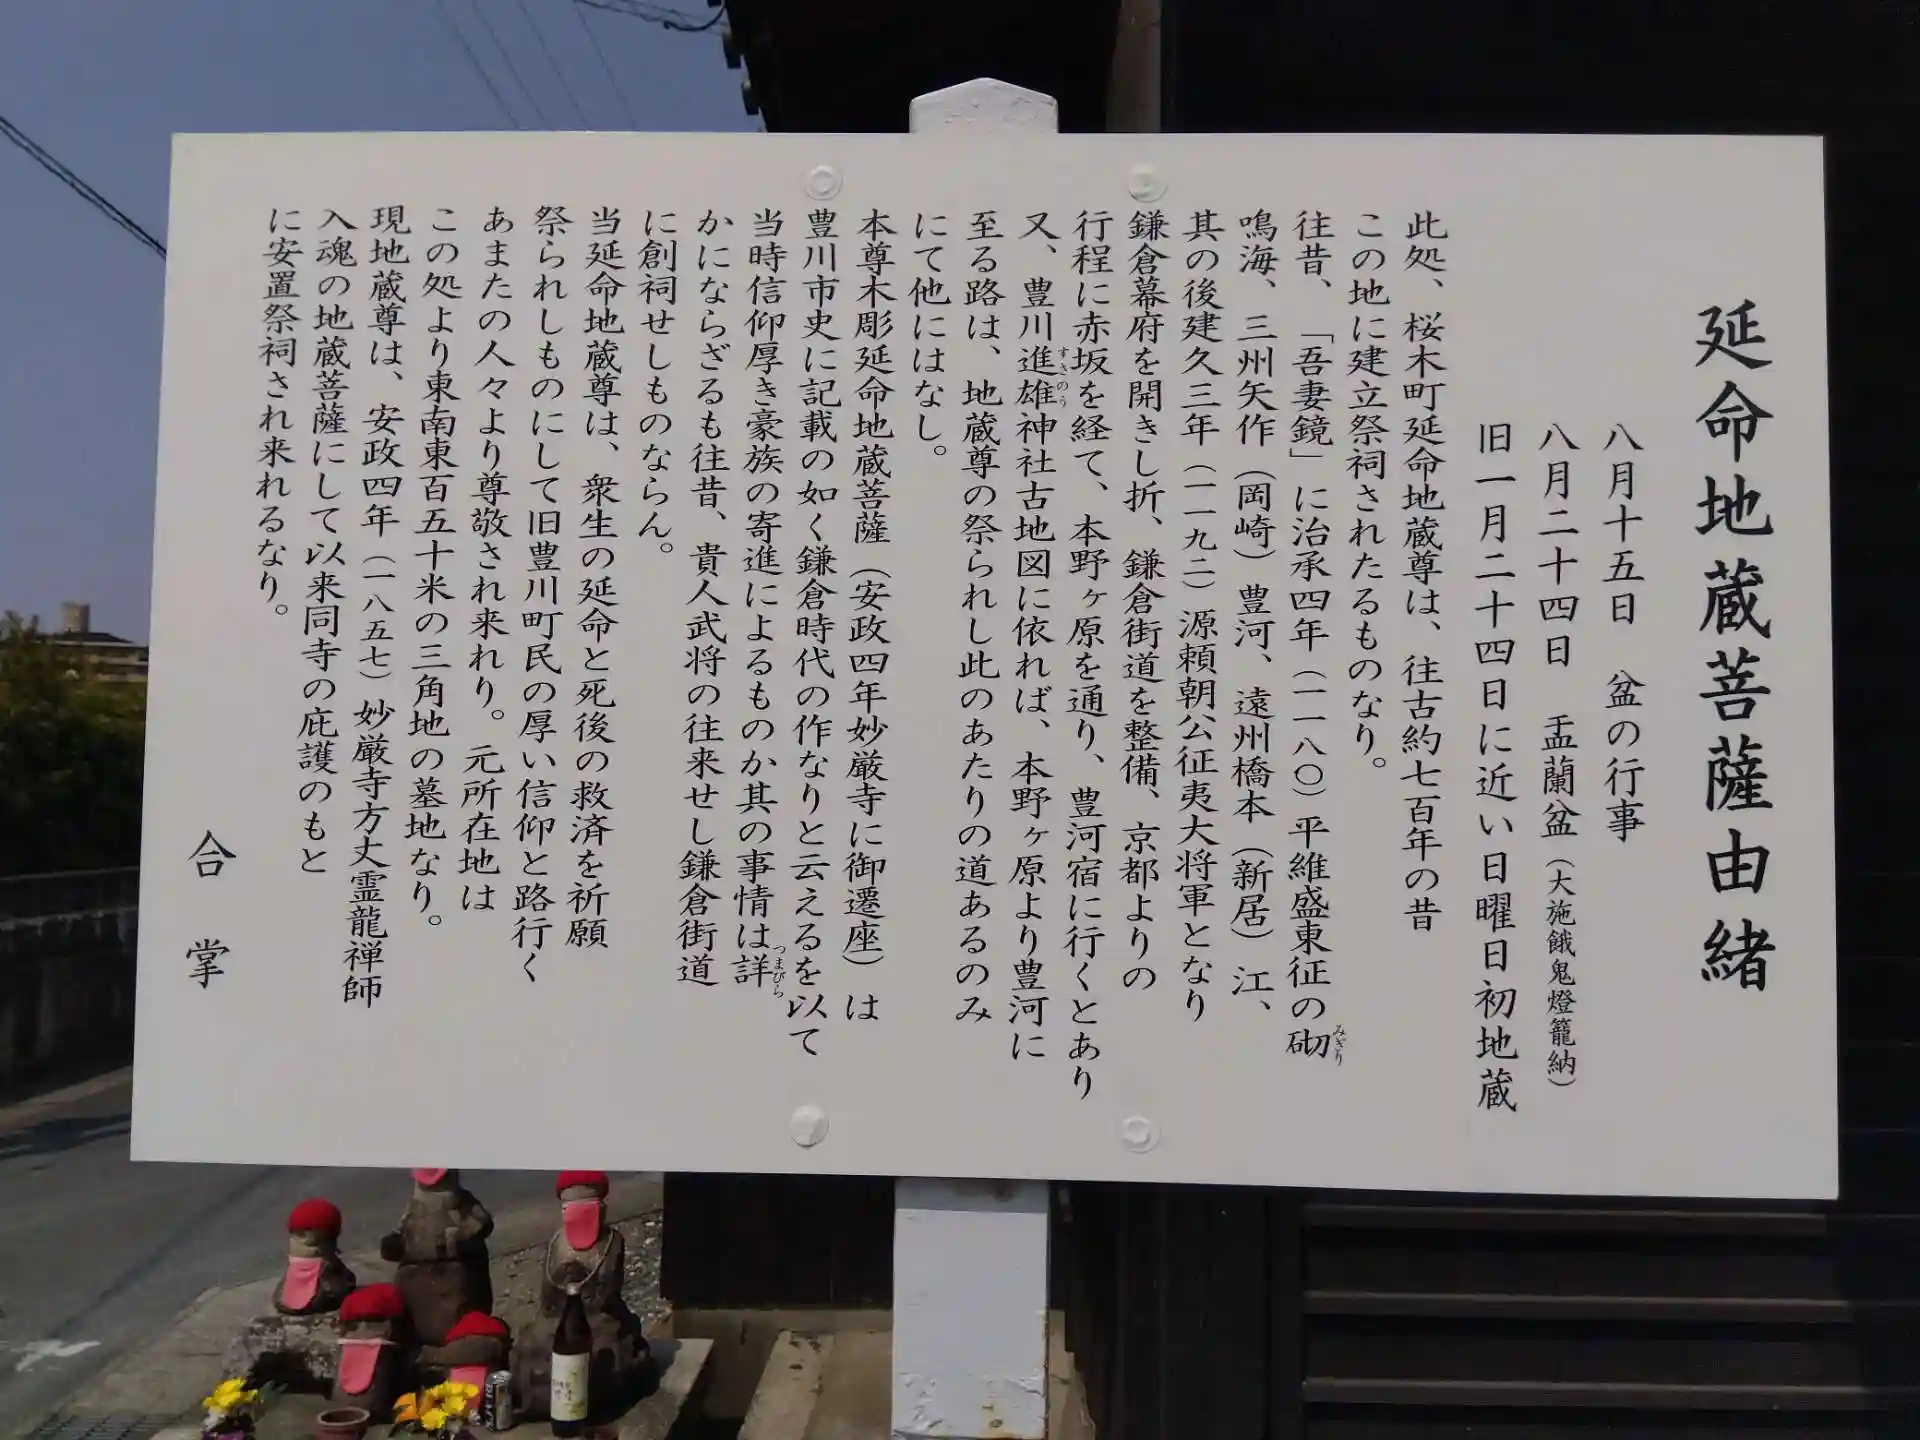 延命地蔵菩薩由緒
八月十五日　盆の行事
八月二十四日　盂蘭盆（大施餓鬼燈籠納）
旧一月二十四日に近い日曜日初地蔵
此処、桜木町延命地蔵尊は、往古約七百年の昔
この地に建立祭祠されたるものなり。
往昔、「吾妻鏡」に治承四年（一一八〇）平維盛東征の砌みぎり
鳴海、三州矢作（岡崎）豊河、遠州橋本（新居）江、
其の後建久三年（一一九二）源頼朝公征夷大将軍となり
鎌倉幕府を開きし折、鎌倉街道を整備、京都よりの
行程に赤坂を経て、本野ヶ原を通り、豊河宿に行くとあり
又、豊川進雄すさのう神社古地図に依れば、本野ヶ原より豊河に
至る路は、地蔵尊の祭られし此のあたりの道あるのみ
にて他にはなし。
本尊木彫延命地蔵菩薩（安政四年妙厳寺に御遷座）は
豊川市史に記載の如く鎌倉時代の作なりと云えるを以て
当時信仰厚き豪族の寄進によるものか其の事情は詳つまびら
かにならざるも往昔、貴人武将の往来せし鎌倉街道
に創祠せしものならん。
当延命地蔵尊は、衆生の延命と死後の救済を祈願
祭られしものにして旧豊川町民の厚い信仰と路行く
あまたの人々より尊敬され来れり。元所在地は
この処より東南東百五十米の三角地の墓地なり。
現地蔵尊は、安政四年（一八五七）妙厳寺方丈霊龍禅師
入魂の地蔵菩薩にして以来同寺の庇護のもと
に安置祭祠され来れるなり。
合掌